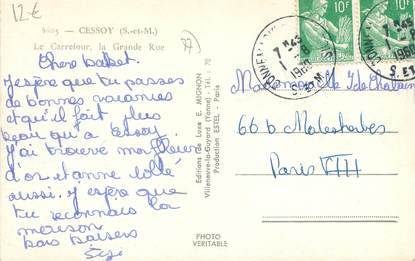 12€
8203 - CESSOY (S.-et-M.)
Le Carrefour, la Grande Rue
77
Chère
J'espère que tu passes
de bonnes vacances
et qu'il fait plus
beau qu'à Cessoy
J'ai trouvé ma fleur
d'or et anne lolle
aussi. J'espère que
tu reconnais la
maison
bons baisers
Éditions de Luxe E. MIGNON
Villeneuve-la-Guyard (Yonne) - Tél. 70
Production ESTEL - Paris
PHOTO
VÉRITABLE
10F
10F
1960
Mademoiselle
66 b Malesherbes
Paris VIII